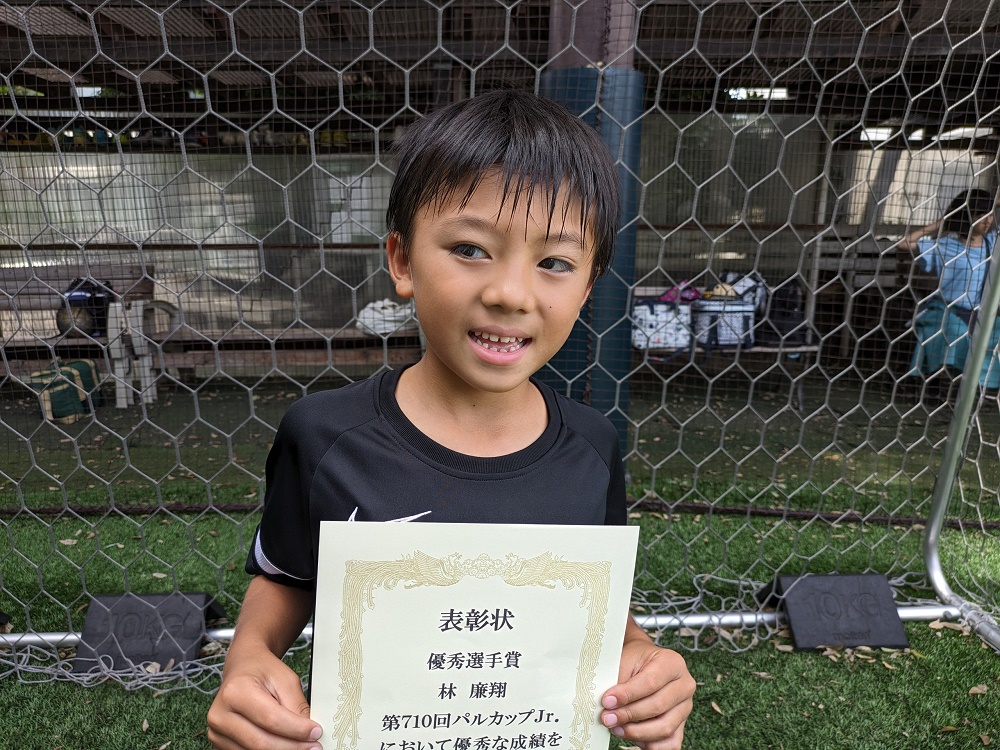 表彰状
優秀選手賞
林 廉翔
第710回パルカップJr.
において優秀な成績を
10KG
10KG